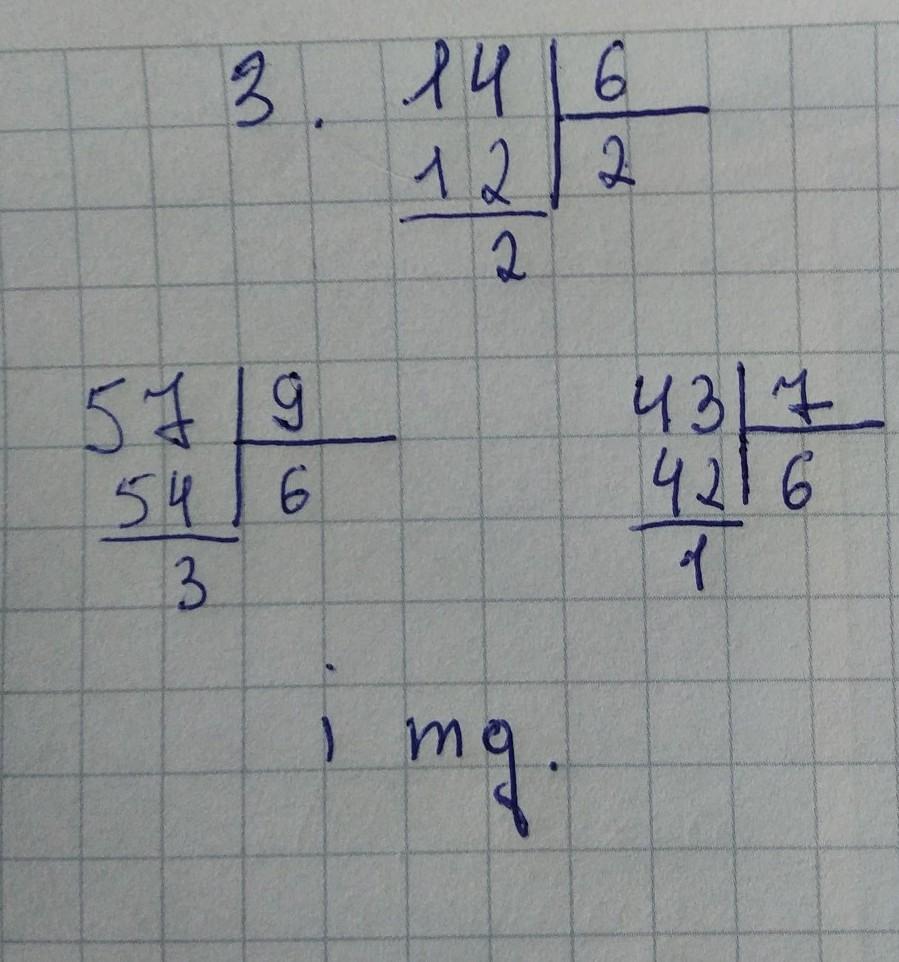 3. 14 | 6
12 | 2
2
57 | 9
54 | 6
3
43 | 7
42 | 6
1
і тд.